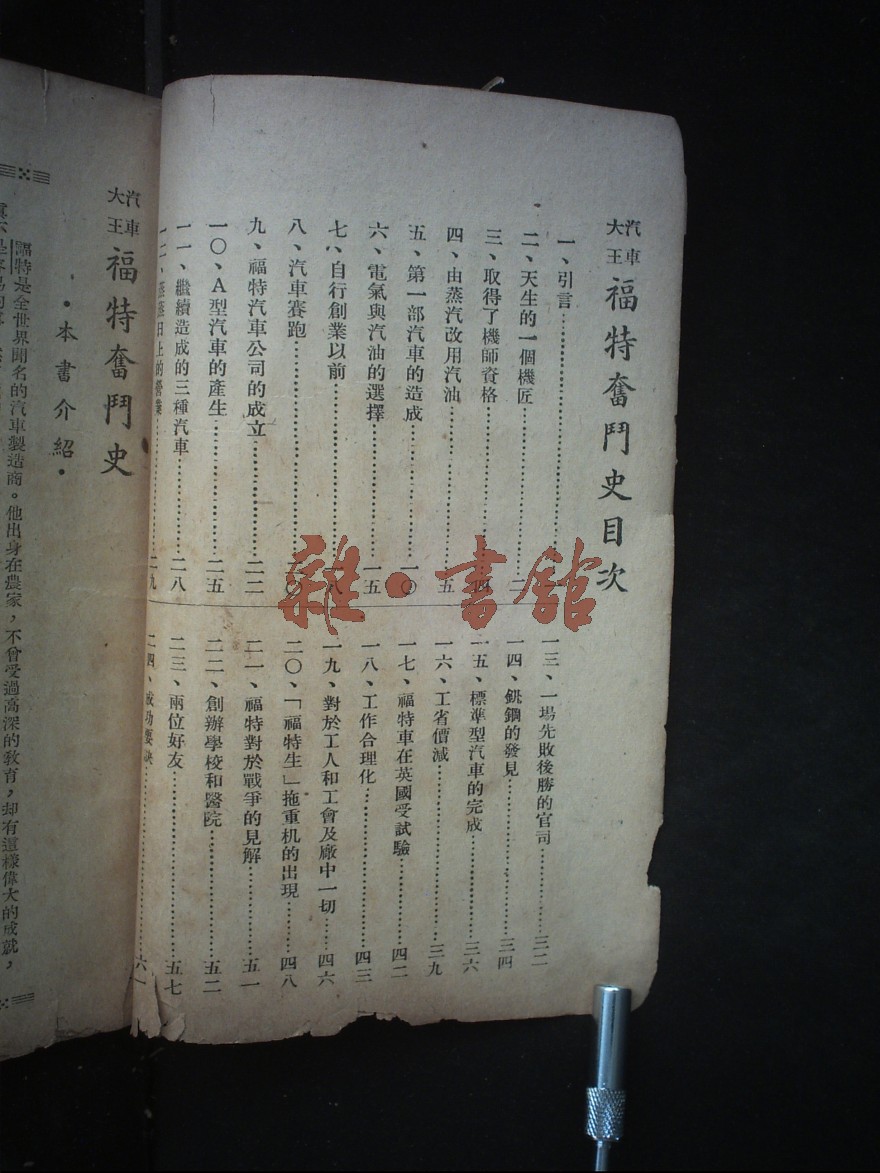 汽車大王 福特奮鬥史目次
一、引言
二、天生的一個機匠………二
三、取得了機師資格………四
四、由蒸汽改用汽油………五
五、第一部汽車的造成………一〇
六、電氣與汽油的選擇………一五
七、自行創業以前………一八
八、汽車賽跑………二〇
九、福特汽車公司的成立………二二
一〇、A型汽車的產生………二五
一一、繼續造成的三種汽車………二八
一二、蒸蒸日上的營業………二九
一三、一場先敗後勝的官司………三二
一四、釩鋼的發見………三四
一五、標準型汽車的完成………三六
一六、工省價減………三九
一七、福特車在英國受試驗………四二
一八、工作合理化………四三
一九、對於工人和工會及廠中一切……四六
二〇、「福特生」拖重机的出現………四八
二一、福特對於戰爭的見解………五一
二二、創辦學校和醫院………五二
二三、兩位好友………五七
二四、成功要訣………六一
汽車大王 福特奮鬥史
•本書介紹•
福特是全世界聞名的汽車製造商。他出身在農家，不曾受過高深的教育，却有這樣偉大的成就，
雜•書館